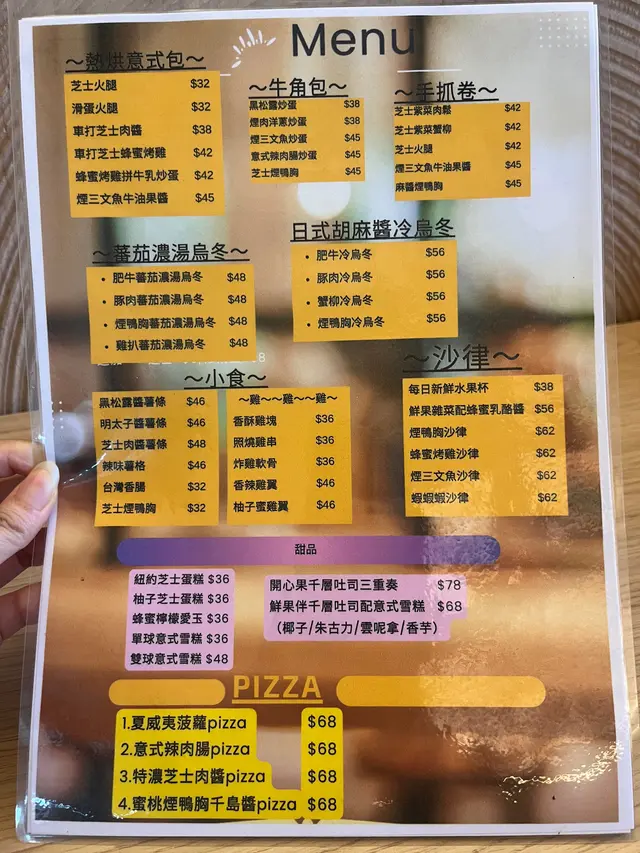 Menu
～熱烘意式包～
芝士火腿 $32
滑蛋火腿 $32
車打芝士肉醬 $38
車打芝士蜂蜜烤雞 $42
蜂蜜烤雞拼牛乳炒蛋 $42
煙三文魚牛油果醬 $45
～牛角包～
黑松露炒蛋 $38
煙肉洋蔥炒蛋 $38
煙三文魚炒蛋 $45
意式辣肉腸炒蛋 $45
芝士煙鴨胸 $45
～手抓卷～
芝士紫菜肉鬆 $42
芝士紫菜蟹柳 $42
芝士火腿 $42
煙三文魚牛油果醬 $45
麻醬煙鴨胸 $45
～蕃茄濃湯烏冬～
• 肥牛蕃茄濃湯烏冬 $48
• 豚肉蕃茄濃湯烏冬 $48
• 煙鴨胸蕃茄濃湯烏冬 $48
• 雞扒蕃茄濃湯烏冬 $48
日式胡麻醬冷烏冬
• 肥牛冷烏冬 $56
• 豚肉冷烏冬 $56
• 蟹柳冷烏冬 $56
• 煙鴨胸冷烏冬 $56
～小食～
黑松露醬薯條 $46
明太子醬薯條 $46
芝士肉醬薯條 $48
辣味薯格 $46
台灣香腸 $32
芝士煙鴨胸 $32
～雞～～雞～～雞～
香酥雞塊 $36
照燒雞串 $36
炸雞軟骨 $36
香辣雞翼 $46
柚子蜜雞翼 $46
～沙律～
每日新鮮水果杯 $38
鮮果雜菜配蜂蜜乳酪醬 $56
煙鴨胸沙律 $62
蜂蜜烤雞沙律 $62
煙三文魚沙律 $62
蝦蝦蝦沙律 $62
甜品
紐約芝士蛋糕 $36
柚子芝士蛋糕 $36
蜂蜜檸檬愛玉 $36
單球意式雪糕 $36
雙球意式雪糕 $48
開心果千層吐司三重奏 $78
鮮果伴千層吐司配意式雪糕 $68
（椰子/朱古力/雲呢拿/香芋）
PIZZA
1.夏威夷菠蘿pizza $68
2.意式辣肉腸pizza $68
3.特濃芝士肉醬pizza $68
4.蜜桃煙鴨胸千島醬pizza $68